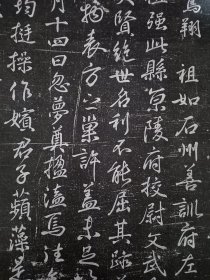 翔 祖如石州善訓府左
強此縣原陵府校尉文武
賢絕世名利不能屈其跡
物表方之巢許蓋未足
月十四日忽夢奠楹溘焉
均挺操作嬪君子蘋藻